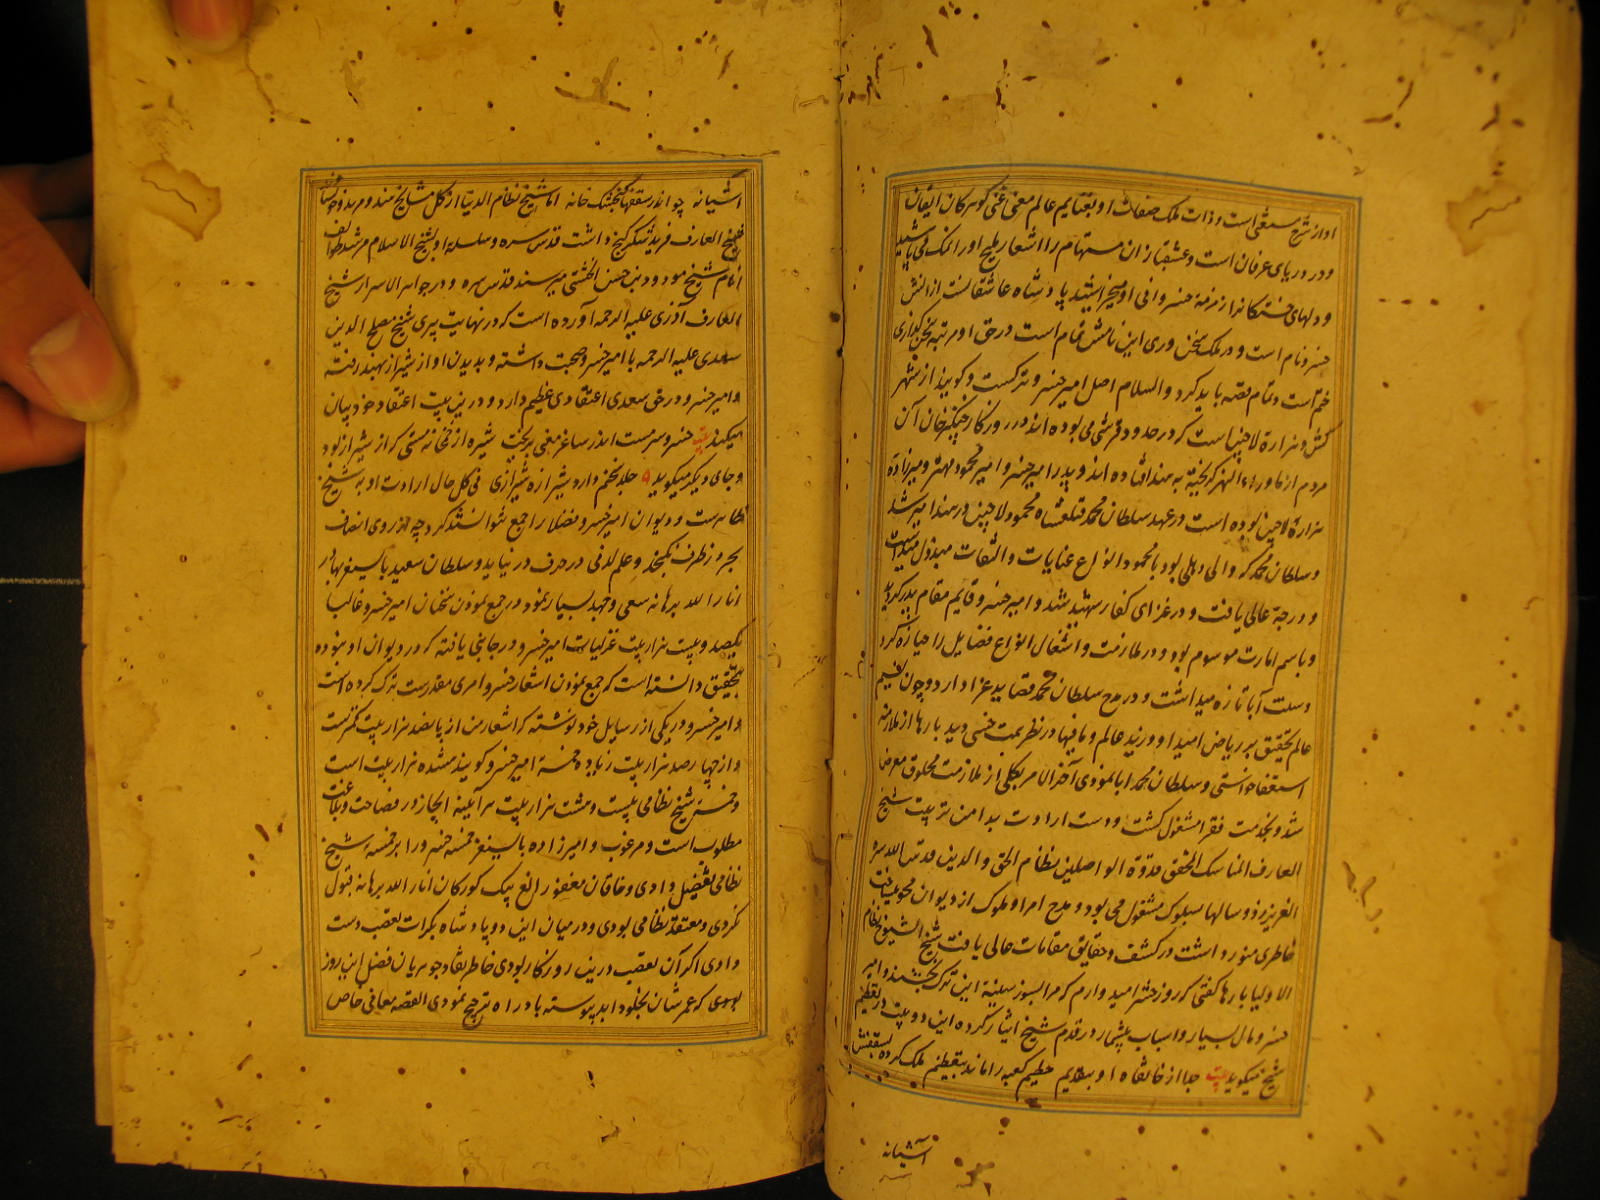 او از شرح مستغنی است و ذات ملک صفات او بغنایم عالم معنی غنی گوهر کان ایقان
و در دریای عرفان است و عشقبازان مستهام را اشعار ملیح او را نمک می پاشید
و دلهای خستگان از زمزمه خسروانی او میخراشید پادشاه عاشقانست از آنش
خسرو نام است و در ملک سخن وری این نامش تمام است در حق او مرتبه سخن گذاری
ختم است و تمام قصه باید کرد والسلام اصل امیر خسرو ترکست و گویند از شهر
کش و هزاره لاچین است که در حدود قرشی می بوده اند در روزگار چنگیز خان آن
مردم از ماوراء النهر گریخته به هند افتاده اند و پدر امیر خسرو امیر محمود مهتر و میرزاده
هزارهٔ لاچین بوده است در عهد سلطان محمد تغلقشاه محمود لاچین در هند امیر شد
و سلطان محمد که والی دهلی بود با محمود انواع عنایات و التفات مبذول میداشت
و درجهٔ عالی یافت و در غزای کفار شهید شد و امیر خسرو قایم مقام پدر گردید
و باسم امارت موسوم بود و در ملازمت و اشتغال انواع فضایل را حیازه کرد
و سنت آبا تازه میداشت و در مدح سلطان محمد قصاید غرا دارد و چون نسیم
عالم تحقیق بر ریاض امید او وزید عالم و مافیها در نظر همت خسی دید بارها از ملازمه
استعفا خواستی و سلطان محمد ابا نمودی آخر الامر بکلی از ملازمت مخلوق معرض
شد و بخدمت فقرا مشغول گشت و دست ارادت بدامن تربیت شیخ
العارف الناسک المحقق قدوة الواصلین نظام الحق والدین قدس الله سره
العزیز زد و سالها بسلوک مشغول می بود و مدح امرا و ملوک از دیوان محو میساخت
خاطری منور داشت در کشف و حقایق مقامات عالی یافت شیخ الشیوخ نظام
الاولیا بارها گفتی که روز حشر امید وارم که مرا بسوز سینهٔ این ترک بخشند و امیر
خسرو مال بسیار و اسباب بیشمار در قدم شیخ ایثار کرده این دو بیت در تعظیم
شیخ میگوید بیت جدا از خانقاه او بتقدیم حطیم کعبه را ماند بتعظیم ملک کرده بسقفش
آشیانه
آشیانه چو اندر سقفها گنجشک خانه اما شیخ نظام الدین از کل مشایخ هند و مرید و خلیفهٔ
شیخ العارف فرید شکر گنج داشت قدس سره و سلسله او بشیخ الاسلام مرشد طوائف
انام شیخ مودود بن حسن الچشتی میرسند قدس سره و در جواهر الاسرار شیخ
العارف آذری علیه الرحمه آورده است که در نهایت پیری شیخ مصلح الدین
سعدی علیه الرحمه با امیر خسرو صحبت داشته و بدیدن او از شیراز بهند رفته
و امیر خسرو در حق سعدی اعتقادی عظیم دارد و در این بیت اعتقاد خود بیان
میکند بیت خسرو سرمست اندر ساغر معنی بریخت شیره از خمخانهٔ مستی که از شیراز بود
و جای دیگر میگوید جلد سخنم دارد شیرازهٔ شیرازی فی کل حال ارادت او به شیخ
نظامست و دیوان امیر خسرو فضلا را جمع نتوانستند کرد چه از روی انصاف
بحر در ظرف نگنجد و علم لدنی در حرف در نیاید و سلطان سعید بایسنغر بهادر
انار الله برهانه سعی و جهد بسیار نمود در جمع نمودن سخنان امیر خسرو غالبا
یکصد و بیست هزار بیت غزلیات امیر خسرو در جائی یافته که در دیوان او نبوده
بتحقیق دانسته است که جمع نمودن اشعار خسرو امری متعذرست ترک کرده است
و امیر خسرو در یکی از رسایل خود نوشته که اشعار من از پانصد هزار بیت کمترست
و از چهار صد هزار بیت زیاده خمسهٔ امیر خسرو گویند هشده هزار بیت است
و خمسه شیخ نظامی بیست و هشت هزار بیت هر آینه ایجاز در فصاحت و بلاغت
مطلوب است و مرغوب و امیرزاده بایسنغر خمسه خسرو را بر خمسهٔ شیخ
نظامی تفضیل دادی و خاقان مغفور الغ بیک گورکان انار الله برهانه قبول
نکردی و معتقد نظامی بودی و در میان این دو پادشاه بکرات تعصب دست
دادی اگر آن تعصب درین روزگار بودی خاطر نقاد جوهریان فضل این روز
بودی که عمرشان بخلود ابد پیوسته باد راه ترجیح نمودی القصه معانی خاص